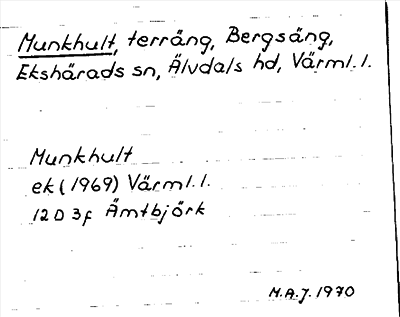 Munkhult, terräng, Bergsäng,
Ekshärads sn, Älvdals hd, Värml. l.
Munkhult
ek (1969) Värml. l.
12 D 3f Ämtbjörk
M.A.J. 1970